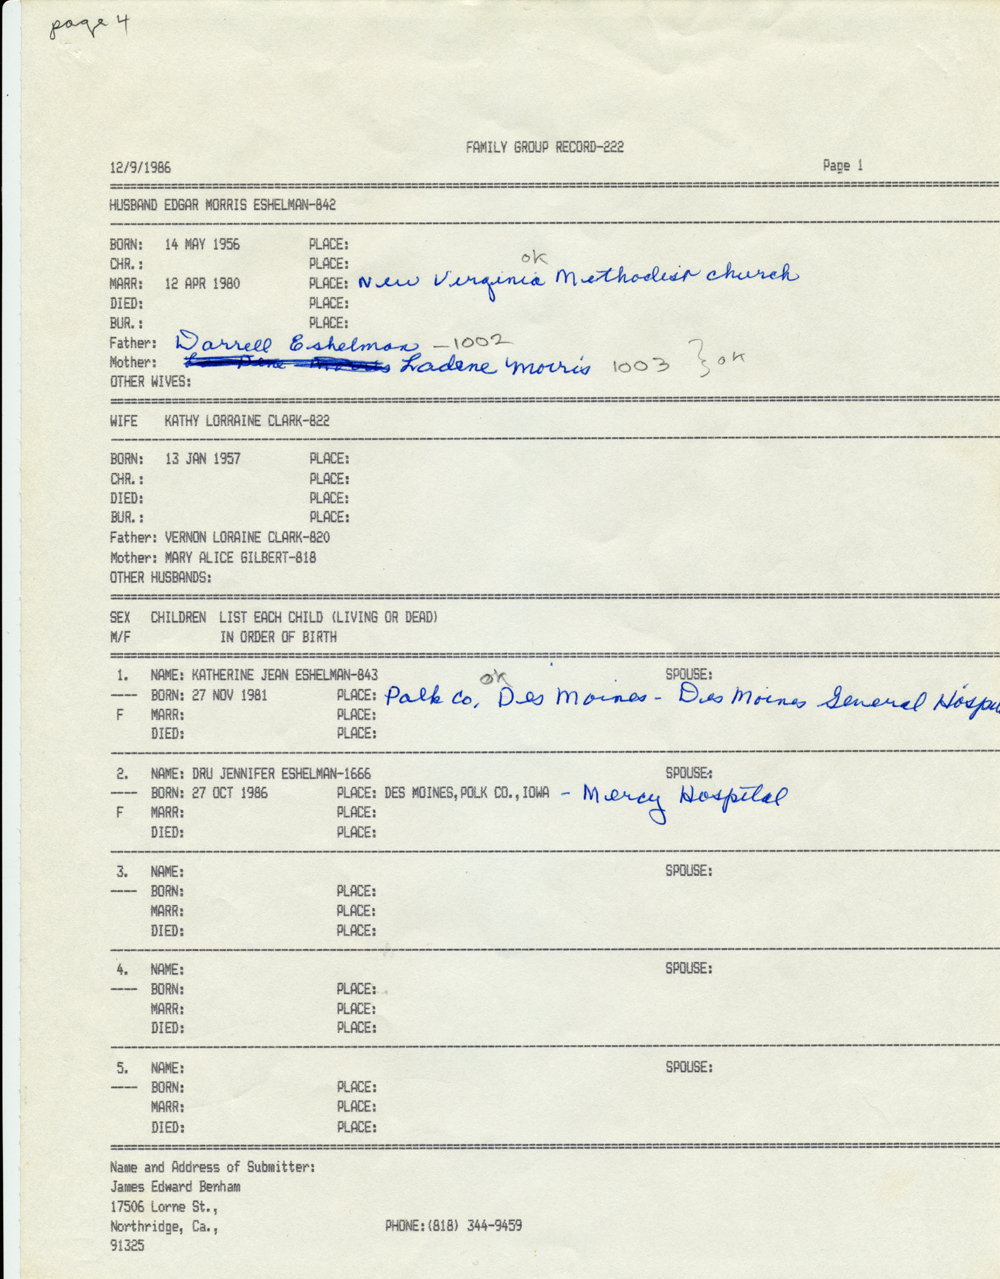 page 4
FAMILY GROUP RECORD-222
12/9/1986 Page 1
HUSBAND EDGAR MORRIS ESHELMAN-842
BORN: 14 MAY 1956 PLACE:
ok
CHR.: PLACE:
MARR: 12 APR 1980 PLACE: New Virginia Methodist church
DIED: PLACE:
BUR.: PLACE:
Father: Darrell Eshelman -1002
Mother: Ladene Morris 1003 } ok
OTHER WIVES:
WIFE KATHY LORRAINE CLARK-822
BORN: 13 JAN 1957 PLACE:
CHR.: PLACE:
DIED: PLACE:
BUR.: PLACE:
Father: VERNON LORAINE CLARK-820
Mother: MARY ALICE GILBERT-818
OTHER HUSBANDS:
SEX CHILDREN LIST EACH CHILD (LIVING OR DEAD)
M/F IN ORDER OF BIRTH
1. NAME: KATHERINE JEAN ESHELMAN-843 SPOUSE:
ok
---- BORN: 27 NOV 1981 PLACE: Polk Co, Des Moines - Des Moines General
F MARR: PLACE:
DIED: PLACE:
2. NAME: DRU JENNIFER ESHELMAN-1666 SPOUSE:
---- BORN: 27 OCT 1986 PLACE: DES MOINES,POLK CO.,IOWA - Mercy Hospital
F MARR: PLACE:
DIED: PLACE:
3. NAME: SPOUSE:
---- BORN: PLACE:
MARR: PLACE:
DIED: PLACE:
4. NAME: SPOUSE:
---- BORN: PLACE:
MARR: PLACE:
DIED: PLACE:
5. NAME: SPOUSE:
---- BORN: PLACE:
MARR: PLACE:
DIED: PLACE:
Name and Address of Submitter:
James Edward Benham
17506 Lorne St.,
Northridge, Ca., PHONE:(818) 344-9459
91325